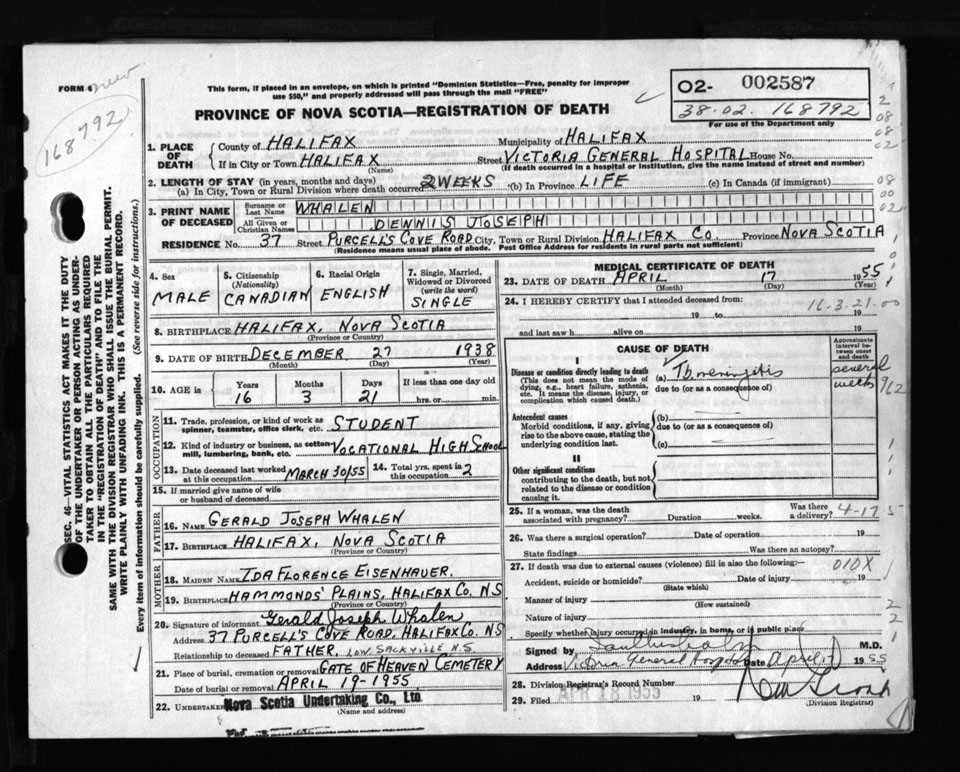 FORM 6
168792
This form, if placed in an envelope, on which is printed "Dominion Statistics—Free, penalty for improper
use $50," and properly addressed will pass through the mail "FREE"
PROVINCE OF NOVA SCOTIA—REGISTRATION OF DEATH
O2- 002587
38-02. 168792
For use of the Department only
1. PLACE OF DEATH
County of HALIFAX Municipality of HALIFAX
If in City or Town HALIFAX Street VICTORIA GENERAL HOSPITAL House No.
(Name) (If death occurred in a hospital or institution, give the name instead of street and number)
2. LENGTH OF STAY (in years, months and days)
(a) In City, Town or Rural Division where death occurred 2 WEEKS (b) In Province LIFE (c) In Canada (if immigrant)
3. PRINT NAME OF DECEASED
Surname or Last Name WHALEN
All Given or Christian Names DENNIS JOSEPH
RESIDENCE No. 37 Street PURCELL'S COVE ROAD City, Town or Rural Division HALIFAX CO. Province NOVA SCOTIA
(Residence means usual place of abode. Post Office Address for residents in rural parts not sufficient)
4. Sex MALE
5. Citizenship (Nationality) CANADIAN
6. Racial Origin ENGLISH
7. Single, Married, Widowed or Divorced (write the word) SINGLE
8. BIRTHPLACE HALIFAX, NOVA SCOTIA
(Province or Country)
9. DATE OF BIRTH DECEMBER 27 1938
(Month) (Day) (Year)
10. AGE in Years 16 Months 3 Days 21 If less than one day hrs. or min.
OCCUPATION
11. Trade, profession, or kind of work as spinner, teamster, office clerk, etc. STUDENT
12. Kind of industry or business, as cotton-mill, lumbering, bank, etc. VOCATIONAL HIGH SCHOOL
13. Date deceased last worked at this occupation MARCH 30/55 14. Total yrs. spent in this occupation 2
15. If married give name of wife or husband of deceased
FATHER
16. NAME GERALD JOSEPH WHALEN
17. BIRTHPLACE HALIFAX, NOVA SCOTIA
(Province or Country)
MOTHER
18. MAIDEN NAME IDA FLORENCE EISENHAUER.
19. BIRTHPLACE HAMMONDS' PLAINS, HALIFAX CO. NS
(Province or Country)
20. Signature of informant Gerald Joseph Whalen
Address 37 PURCELL'S COVE ROAD, HALIFAX CO. NS
Relationship to deceased FATHER, LOW. SACKVILLE N.S.
21. Place of burial, cremation or removal GATE OF HEAVEN CEMETERY
Date of burial or removal APRIL 19-1955
22. UNDERTAKER Nova Scotia Undertaking Co., Ltd
(Name and address)
MEDICAL CERTIFICATE OF DEATH
23. DATE OF DEATH APRIL 17 1955
(Month) (Day) (Year)
24. I HEREBY CERTIFY that I attended deceased from:
16.3.21.00
19 to 19
and last saw h alive on 19
CAUSE OF DEATH
Approximate interval between onset and death
I
Disease or condition directly leading to death
(This does not mean the mode of dying, e.g., heart failure, asthenia, etc. It means the disease, injury, or complication which caused death.)
(a) Tb meningitis several weeks
due to (or as a consequence of)
Antecedent causes
Morbid conditions, if any, giving rise to the above cause, stating the underlying condition last.
(b)
due to (or as a consequence of)
(c)
II
Other significant conditions
contributing to the death, but not related to the disease or condition causing it.
25. If a woman, was the death associated with pregnancy? Duration weeks. Was there a delivery? 4-17 5
26. Was there a surgical operation? Date of operation 19
State findings Was there an autopsy?
27. If death was due to external causes (violence) fill in also the following:—
010X
Accident, suicide or homicide? Date of injury 19
(State which)
Manner of injury
(How sustained)
Nature of injury
Specify whether injury occurred in industry, in home, or in public place
Signed by M.D.
Address Victoria General Hospital Date April 1955
28. Division Registrar's Record Number
29. Filed APR 18 1955 19
(Division Registrar)
SEC. 46—VITAL STATISTICS ACT MAKES IT THE DUTY
OF THE UNDERTAKER OR PERSON ACTING AS UNDER-
TAKER TO OBTAIN ALL THE PARTICULARS REQUIRED
IN THE "REGISTRATION OF DEATH" AND TO FILE THE
SAME WITH THE DIVISION REGISTRAR WHO SHALL ISSUE THE BURIAL PERMIT.
WRITE PLAINLY WITH UNFADING INK. THIS IS A PERMANENT RECORD.
Every item of information should be carefully supplied. (See reverse side for instructions.)